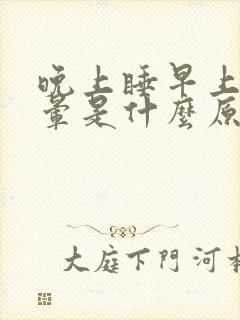 晚上睡早上
暈是什麼原
大庭下門河